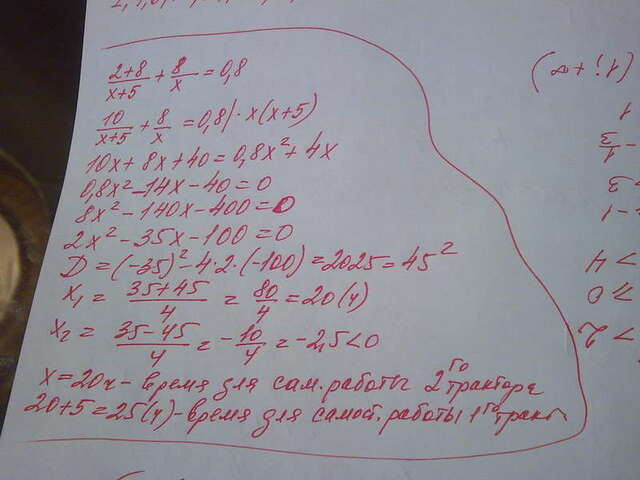 (2+8)/(x+5) + 8/x = 0,8
10/(x+5) + 8/x = 0,8 | · x(x+5)
10x + 8x + 40 = 0,8x² + 4x
0,8x² - 14x - 40 = 0
8x² - 140x - 400 = 0
2x² - 35x - 100 = 0
D = (-35)² - 4·2·(-100) = 2025 = 45²
x₁ = (35+45)/4 = 80/4 = 20 (ч)
x₂ = (35-45)/4 = -10/4 = -2,5 < 0
x = 20ч - время для сам. работы 2го трактора
20+5 = 25(ч) - время для самост. работы 1го тракт